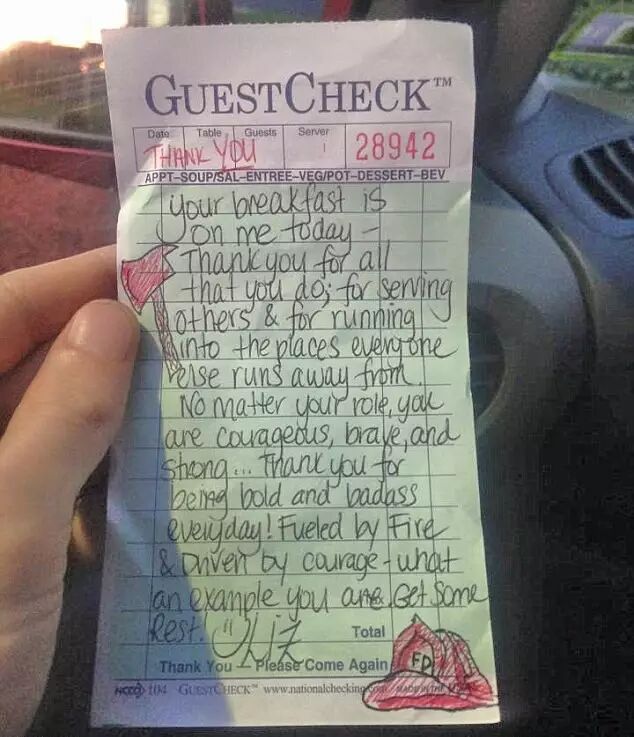 GUESTCHECK™
Date Table Guests Server
THANK YOU 28942
APPT-SOUP/SAL-ENTREE-VEG/POT-DESSERT-BEV
your breakfast is
on me today -
Thank you for all
that you do; for serving
others & for running
into the places everyone
else runs away from.
No matter your role, you
are courageous, brave, and
strong... Thank you for
being bold and badass
everyday! Fueled by Fire
& Driven by courage - what
an example you are. Get some
Rest. Liz
Total
FD
Thank You — Please Come Again
104 GUESTCHECK™ www.nationalchecking.com